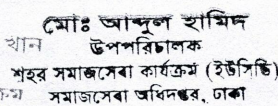 মোঃ আব্দুল হামিদ
থান
উপপরিচালক
শহর সমাজসেবা কার্যক্রম (ইউসিডি)
সমাজসেবা অধিদপ্তর, ঢাকা